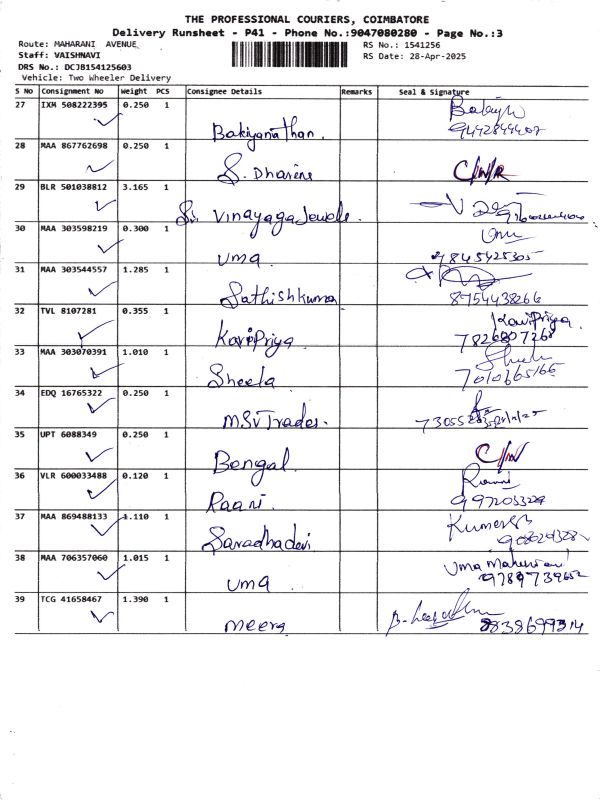 THE PROFESSIONAL COURIERS, COIMBATORE
Delivery Runsheet - P41 - Phone No.:9047080280 - Page No.:3
Route: MAHARANI AVENUE
RS No.: 1541256
Staff: VAISHNAVI
RS Date: 28-Apr-2025
DRS No.: DCJB154125603
Vehicle: Two Wheeler Delivery
S No Consignment No Weight PCS Consignee Details Remarks Seal & Signature
27 IXM 508222395 0.250 1
Bakiyanathan
28 MAA 867762698 0.250 1
S. Dharene
29 BLR 501038812 3.165 1
Sri Vinayaga Jewels
30 MAA 303598219 0.300 1
uma
9845425305
31 MAA 303544557 1.285 1
Sathishkumar
8754438266
32 TVL 8107281 0.355 1
KaviPriya
KaviPriya
33 MAA 303070391 1.010 1
Sheela
34 EDQ 16765322 0.250 1
M.S.V Trades.
35 UPT 6088349 0.250 1
Bengal
36 VLR 600033488 0.120 1
Raani
37 MAA 869488133 1.110 1
Saradhadevi
38 MAA 706357060 1.015 1
uma
Uma Maheswari
9789739652
39 TCG 41658467 1.390 1
meera